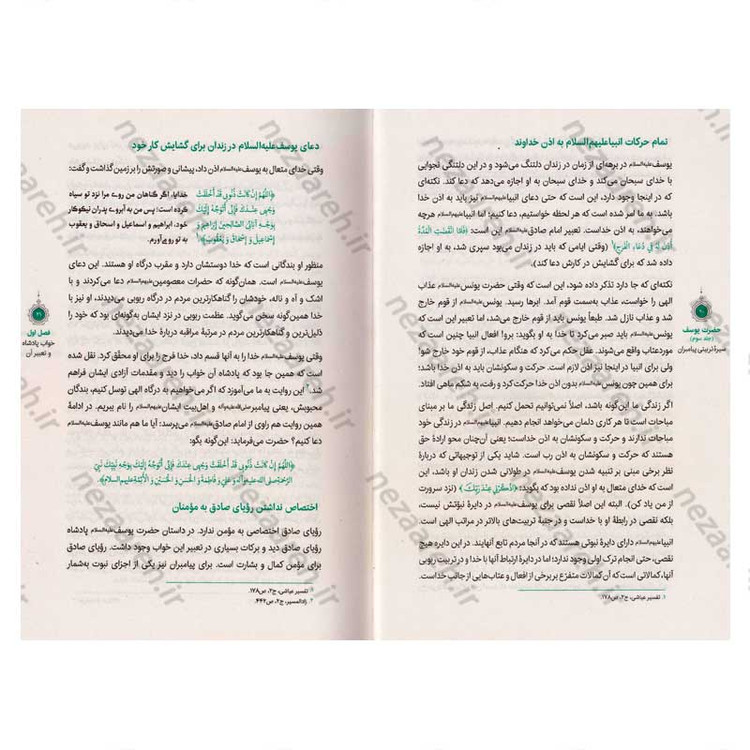 تمام حرکات انبیاعلیهم‌السلام به اذن خداوند
یوسف‌علیه‌السلام در برهه‌ای از زمان در زندان دلتنگ می‌شود و در این دلتنگی نجوایی
با خدای سبحان می‌کند و خدای سبحان به او اجازه می‌دهد که دعا کند. نکته‌ای
که در اینجا وجود دارد، این است که حتی دعای انبیا نیز باید به اذن خدا
باشد. به ما امر شده است که هر لحظه خواستیم، دعا کنیم؛ اما انبیاعلیهم‌السلام هرچه
می‌خواهند، به اذن خداست. تعبیر امام صادق‌علیه‌السلام این است: ﴿فَلَمَّا انْقَضَتِ الْمُدَّةُ
أُذِنَ لَهُ فِي دُعَاءِ الْفَرَجِ﴾۱ (وقتی ایامی که باید در زندان می‌بود سپری شد، به او اجازه
داده شد که برای گشایش در کارش دعا کند).
نکته‌ای که جا دارد تذکر داده شود، این است که وقتی حضرت یونس‌علیه‌السلام عذاب
الهی را خواست، عذاب به‌سمت قوم آمد. ابرها رسید. یونس‌علیه‌السلام از قوم خارج
شد و عذاب نازل شد. طبعاً یونس باید از قوم خارج می‌شد، اما تعبیر این است که
یونس‌علیه‌السلام باید صبر می‌کرد تا خدا به او بگوید: برو! افعال انبیا چنین است که
موردعتاب واقع می‌شوند. عقل حکم می‌کرد که هنگام عذاب، از قوم خود خارج شو!
ولی برای انبیا در اینجا نیز اذن لازم است. حرکت و سکونشان باید به اذن خدا باشد؛
برای همین چون یونس‌علیه‌السلام بدون اذن خدا حرکت کرد و رفت، به شکم ماهی افتاد.
اگر زندگی ما این‌گونه باشد، اصلاً نمی‌توانیم تحمل کنیم. اصل زندگی ما بر مبنای
مباحات است تا هر کاری دلمان می‌خواهد انجام دهیم. انبیاعلیهم‌السلام در زندگی خود
مباحات ندارند و حرکت و سکونشان به اذن خداست؛ یعنی آن‌چنان محو ارادهٔ حق
هستند که حرکت و سکونشان به اذن رب است. شاید یکی از توجیهاتی که دربارهٔ
نظر برخی مبنی بر تنبیه شدن یوسف‌علیه‌السلام در طولانی شدن زندان او باشد، این
است که خدای متعال به او اذن نداده بود که بگوید: ﴿اذْكُرْنِي عِنْدَ رَبِّكَ﴾ (نزد سرورت
از من یاد کن). البته این اصلاً نقصی برای یوسف‌علیه‌السلام در دایرهٔ نبوتش نیست،
بلکه نقصی در رابطهٔ او با خداست و در جنبهٔ تربیت‌های بالاتر در مراتب الهی است.
انبیاعلیهم‌السلام دارای دایرهٔ نبوتی هستند که در آنجا مردم تابع آنهایند. در این دایره هیچ
نقصی، حتی انجام ترک اولی وجود ندارد؛ اما در دایرهٔ ارتباط آنها با خدا و در تربیت ربوبی
آنها، کمالاتی است که آن کمالات متفرّع بر برخی از افعال و عتاب‌هایی از جانب خداست.
۱. تفسیر عیاشی، ج۲، ص۱۷۸.
حضرت یوسف
(جلد سوم)
سیرهٔ تربیتی پیامبران
دعای یوسف‌علیه‌السلام در زندان برای گشایش کار خود
وقتی خدای متعال به یوسف‌علیه‌السلام اذن داد، پیشانی و صورتش را بر زمین گذاشت و گفت:
﴿اللَّهُمَّ إِنْ كَانَتْ ذُنُوبِي قَدْ أَخْلَقَتْ
وَجْهِي عِنْدَكَ فَإِنِّي أَتَوَجَّهُ إِلَيْكَ
بِوَجْهِ آبَائِيَ الصَّالِحِينَ إِبْرَاهِيمَ وَ
إِسْمَاعِيلَ وَ إِسْحَاقَ وَ يَعْقُوبَ﴾؛۱
خدایا، اگر گناهان من روی مرا نزد تو سیاه
کرده است؛ پس من به آبروی پدران نیکوکار
خود، ابراهیم و اسماعیل و اسحاق و یعقوب
به تو روی‌آورم.
منظور او بندگانی است که خدا دوستشان دارد و مقرب درگاه او هستند. این دعای
یوسف‌علیه‌السلام است. همان‌گونه که حضرات معصومین‌علیهم‌السلام دعا می‌کردند و با
اشک و آه و ناله، خودشان را گناهکارترین مردم در درگاه ربوبی می‌دیدند، او نیز با
خدا همین‌گونه سخن می‌گوید. عظمت ربوبی در نزد ایشان به‌گونه‌ای بود که خود را
ذلیل‌ترین و گناهکارترین مردم در مرتبهٔ مراقبهٔ درگاه خدا می‌دیدند.
وقتی یوسف‌علیه‌السلام خدا را به آنها قسم داد، خدا فرج را برای او محقّق کرد. نقل شده
است که همین جا بود که پادشاه آن خواب را دید و مقدمات آزادی ایشان فراهم
شد.۲ این روایت به ما می‌آموزد که اگر می‌خواهیم به درگاه الهی توسل کنیم، بندگان
محبوبش، یعنی پیامبرصلی‌الله‌علیه‌وآله و اهل‌بیت ایشان‌علیهم‌السلام را نام ببریم. در ادامهٔ
همین روایت هم راوی از امام صادق‌علیه‌السلام می‌پرسد: آیا ما هم مانند یوسف‌علیه‌السلام
دعا کنیم؟ حضرت می‌فرماید: این‌گونه بگو:
﴿اللَّهُمَّ إِنْ كَانَتْ ذُنُوبِي قَدْ أَخْلَقَتْ وَجْهِي عِنْدَكَ فَإِنِّي أَتَوَجَّهُ إِلَيْكَ بِوَجْهِ نَبِيِّكَ نَبِيِّ
الرَّحْمَةِ صلی الله علیه وآله وَ عَلِيٍّ وَ فَاطِمَةَ وَ الْحَسَنِ وَ الْحُسَيْنِ وَ الْأَئِمَّةِ علیهم‌السلام﴾.
اختصاص نداشتن رؤیای صادق به مؤمنان
رؤیای صادق اختصاصی به مؤمن ندارد. در داستان حضرت یوسف‌علیه‌السلام پادشاه
رؤیای صادق دید و برکات بسیاری در تعبیر این خواب وجود داشت. رؤیای صادق
برای مؤمن کمال و بشارت است. برای پیامبران نیز یکی از اجزای نبوت به‌شمار
۱. تفسیر عیاشی، ج۲، ص۱۷۸.
۲. زادالمسیر، ج۲، ص۴۴۲.
۲۱
فصل اول
خواب پادشاه
و تعبیر آن
nezaareh.ir